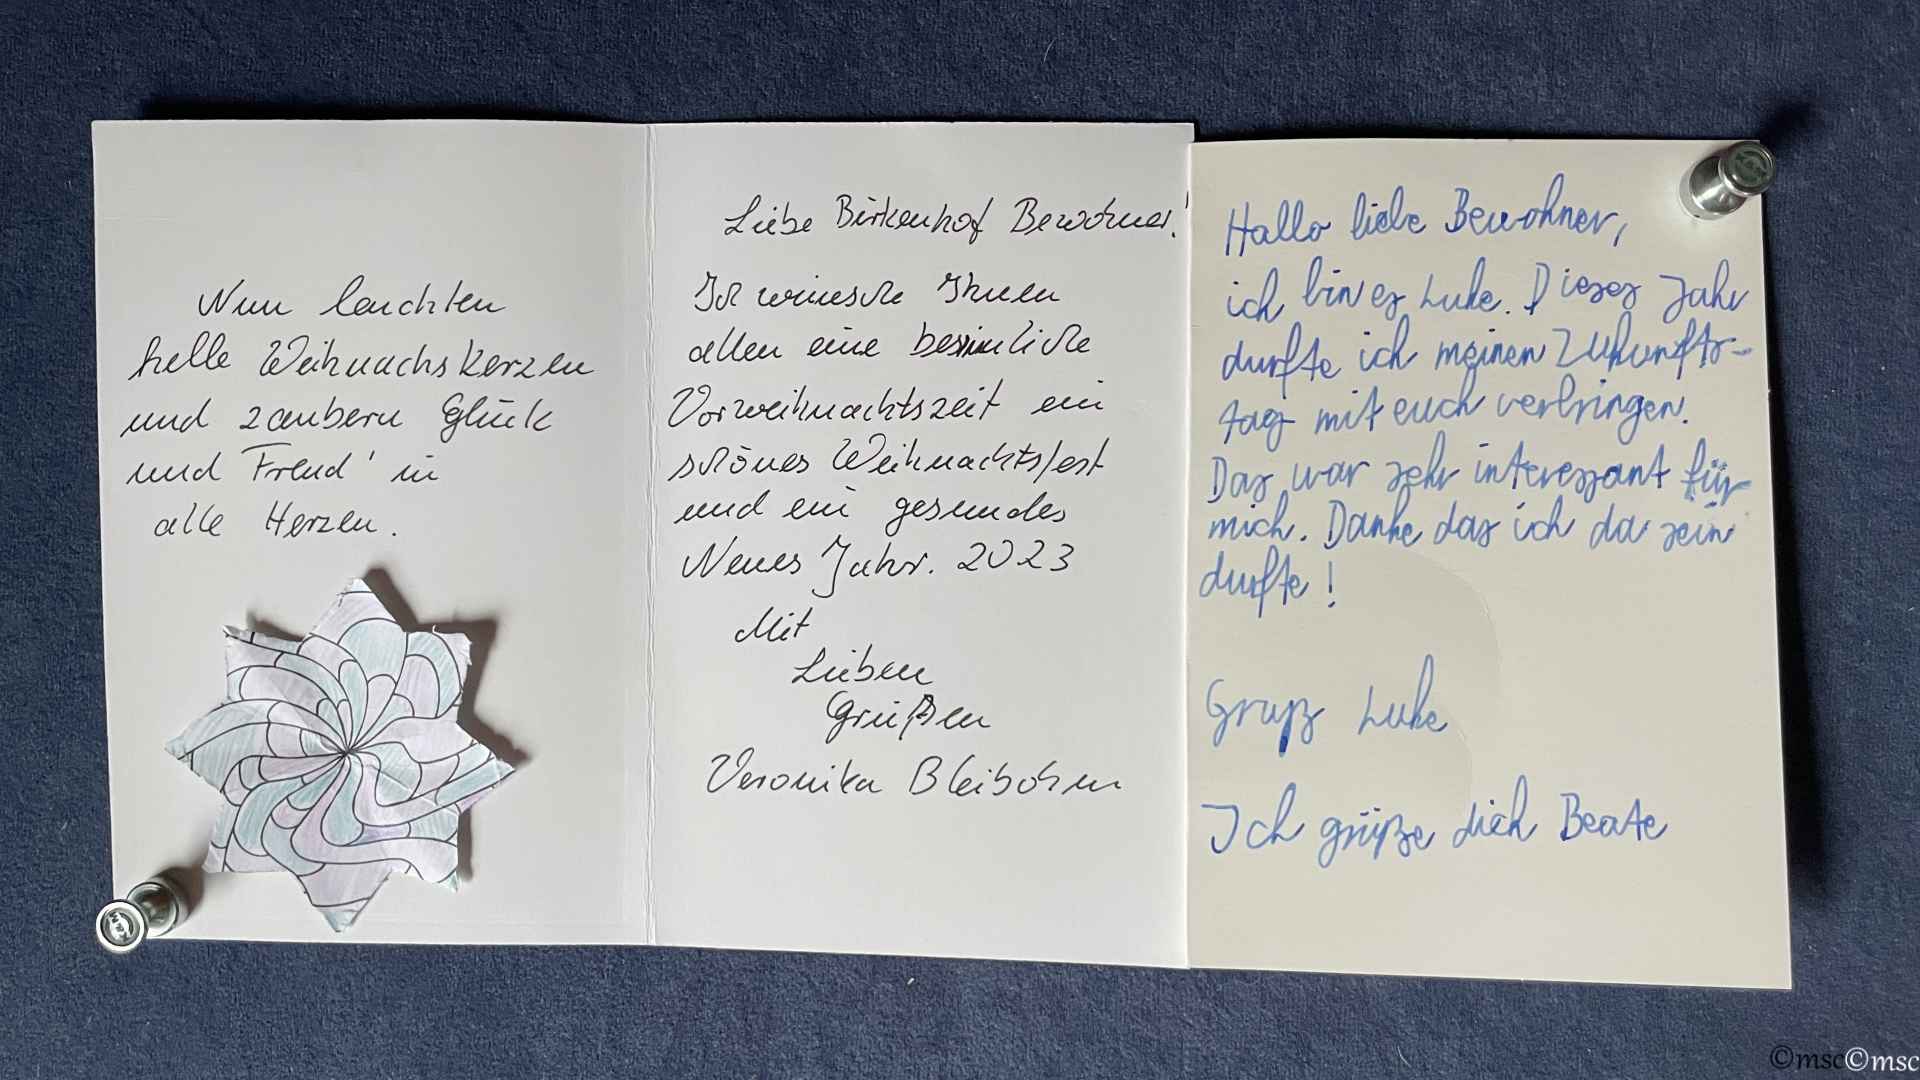 Nun leuchten
helle Weihnachskerzen
und zaubern Glück
und Freud' in
alle Herzen.
Liebe Birkenhof Bewohner!
Ich wünsche Ihnen
allen eine besinnliche
Vorweihnachtszeit ein
schönes Weihnachtsfest
und ein gesundes
Neues Jahr. 2023
Mit
Lieben
Grüßen
Veronika Bleibohm
Hallo liebe Bewohner,
ich bin es Luke. Dieses Jahr
durfte ich meinen Zukunfts-
tag mit euch verbringen.
Das war sehr interessant für
mich. Danke das ich da sein
durfte!
Gruß Luke
Ich grüße dich Beate
©msc©msc